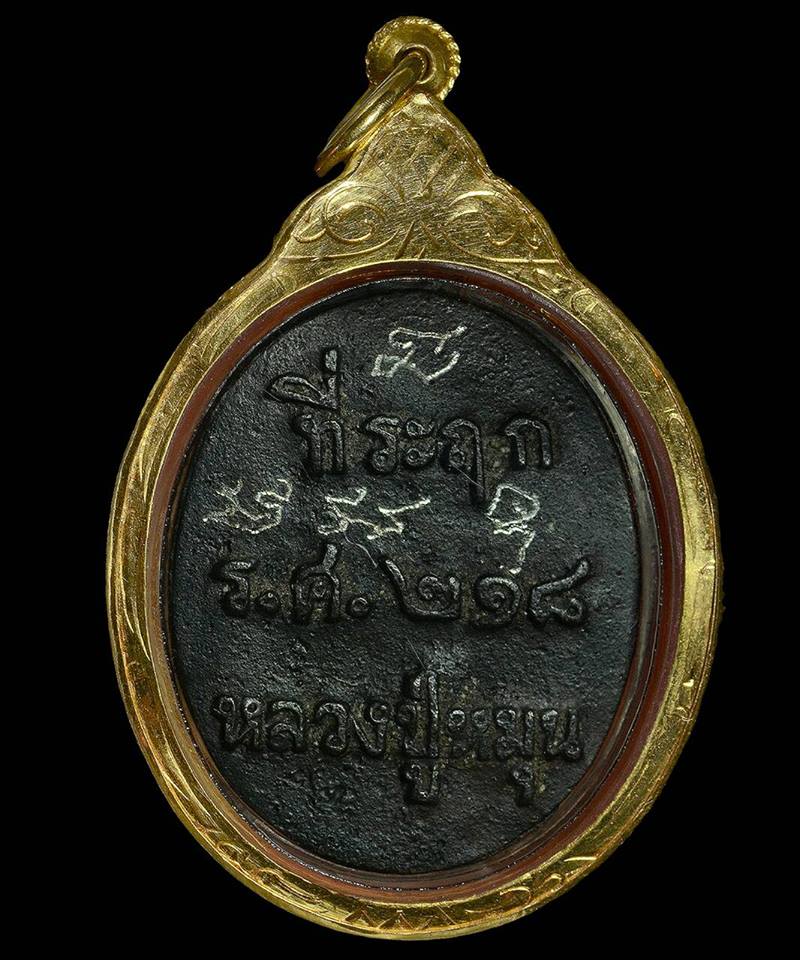 ที่ระฤก
ร.ศ.๒๑๘
หลวงปู่หมุน